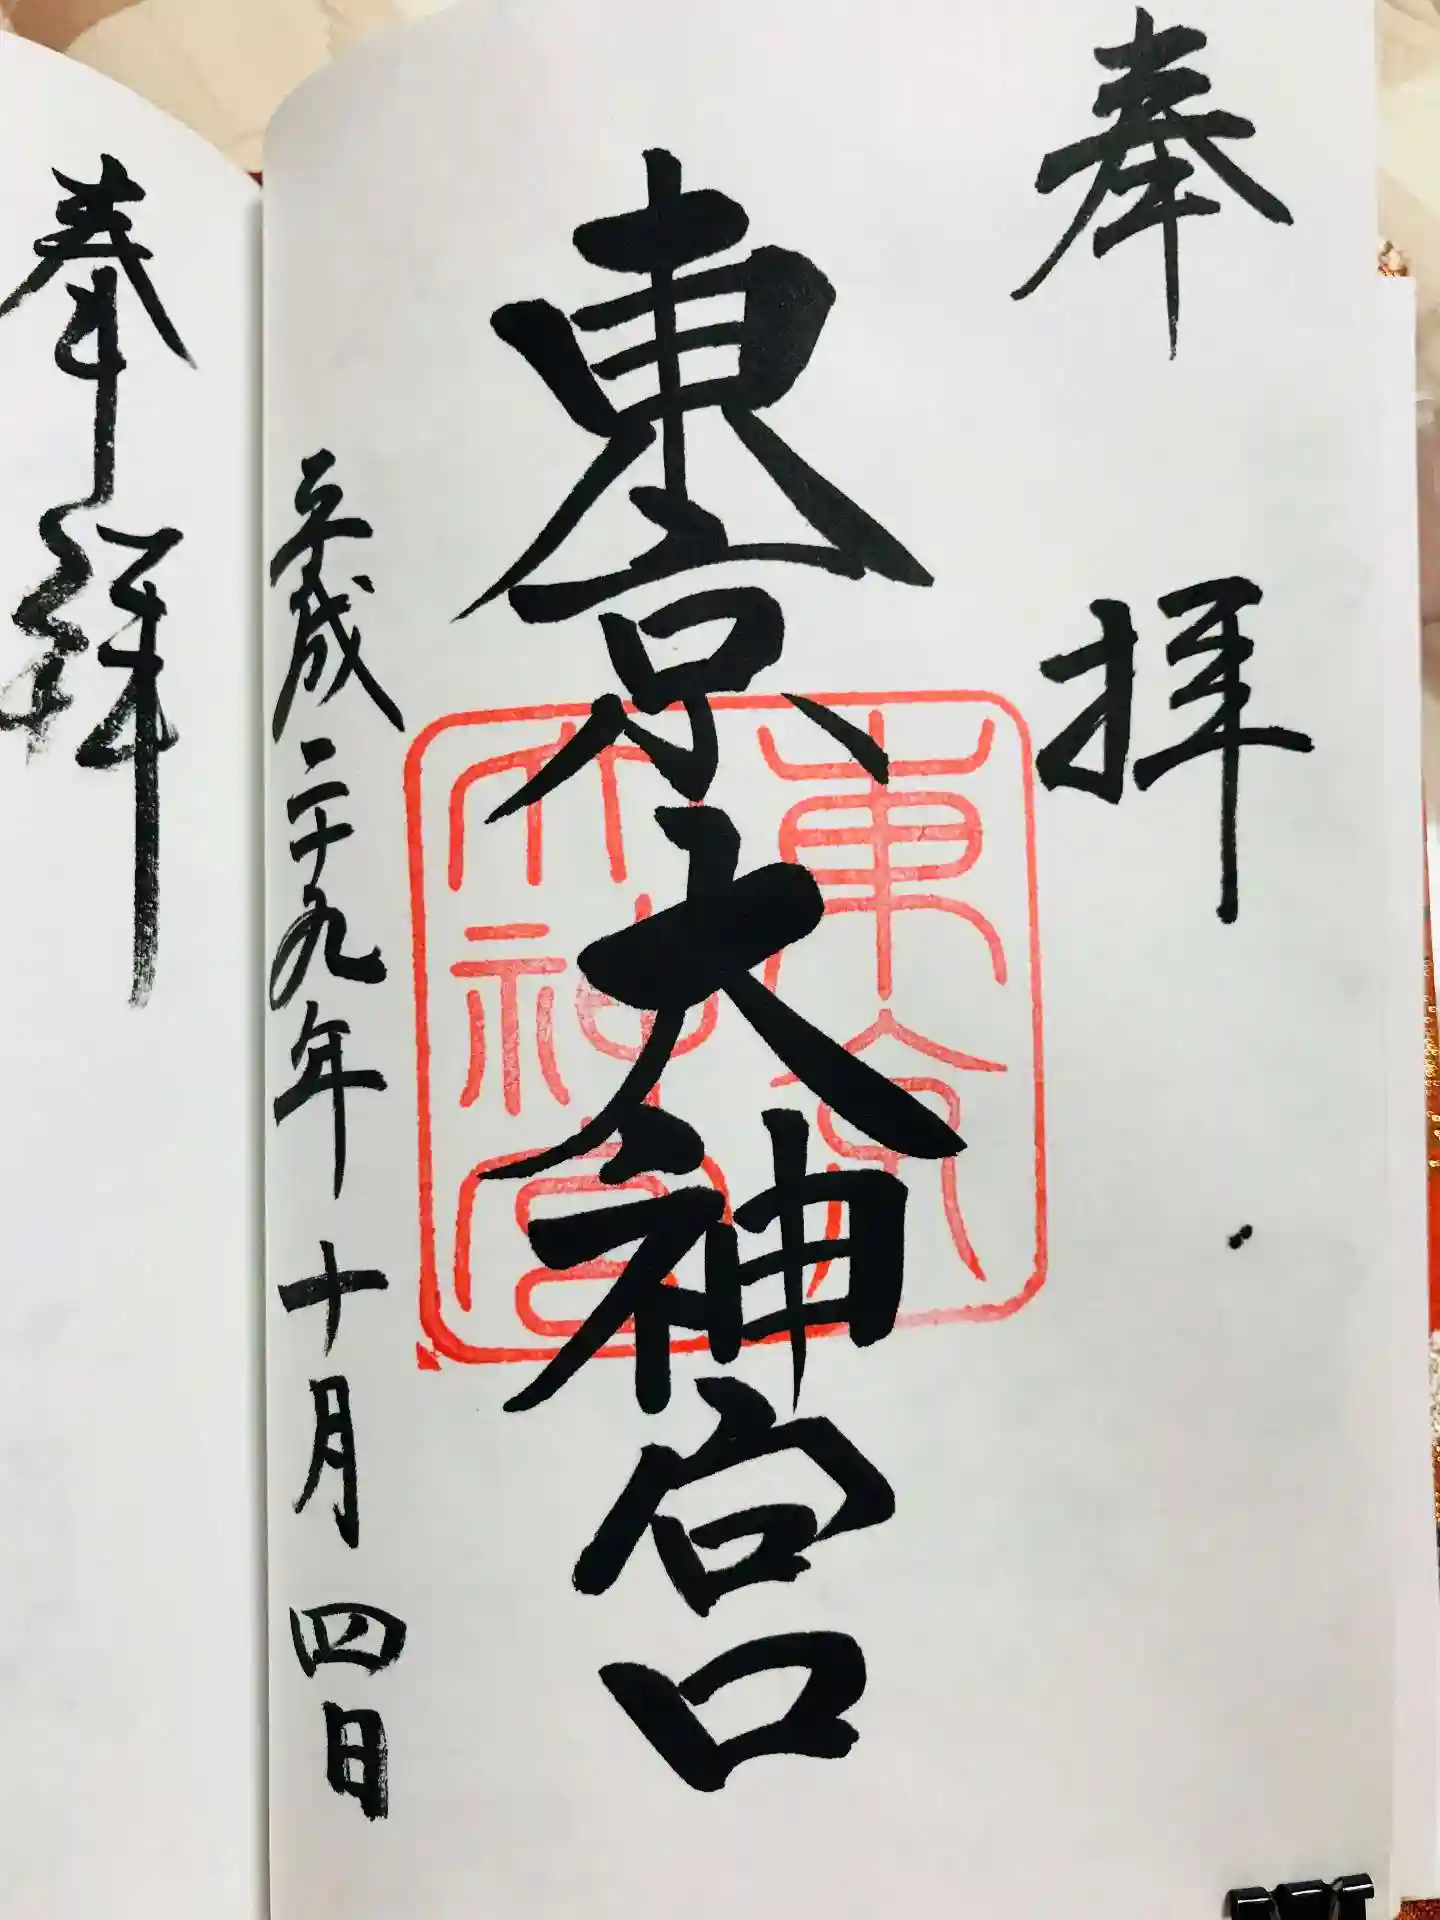 奉拝
東京大神宮
東京
大神宮
平成二十九年十月四日
奉拝